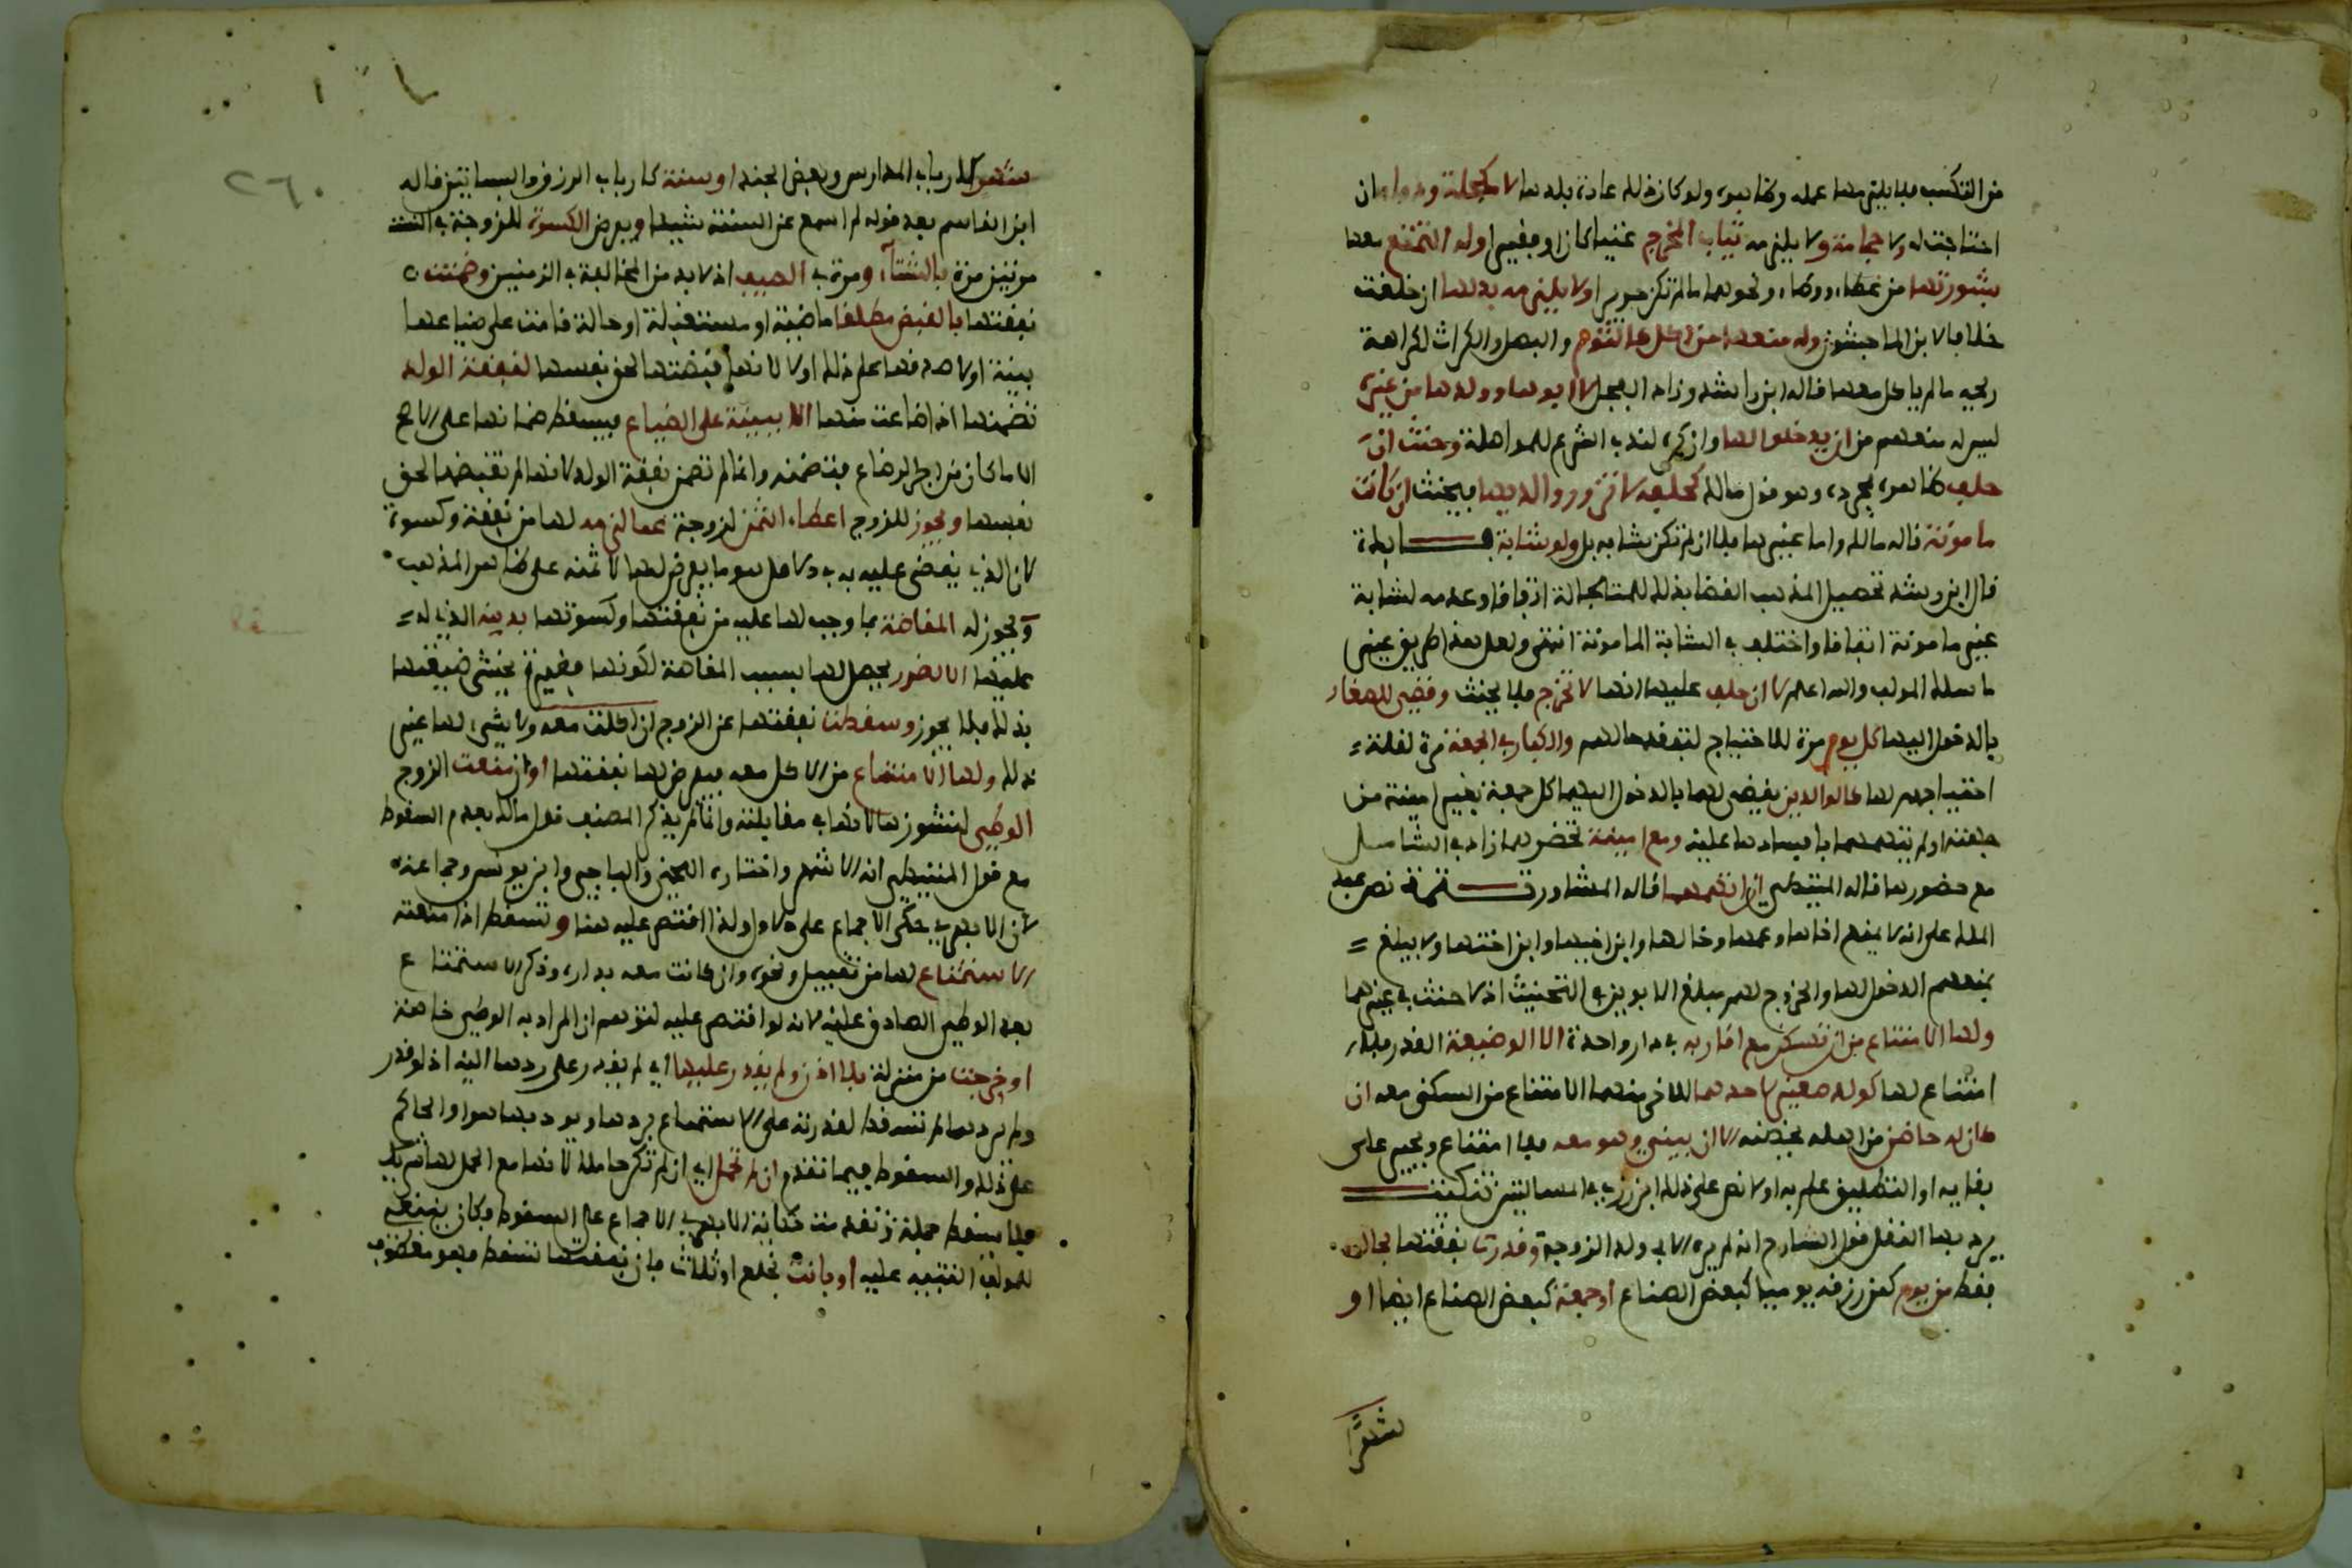 من التكسب فلا يلزمها عمله وظاهره ولو كان ذلك عادة بلدها لا مكحلة ودواء ان
احتاجت له ولا حجامة ولا يلزمه ثياب المخرج غنيا كان او فقيرا وله التمتع معها
بشورتها من غطاء ووطاء ونحوهما ما لم تكن حريرا ولا يلزمه بدلها ان خلقت
خلافا لابن الماجشون وله منعها من اكل كالثوم والبصل والكراث لكراهة
ريحه ما لم ياكل معها قاله ابن راشد وزاد الفجل لا ابويها وولدها من غيره
ليس له منعهم من ان يدخلوا لها وان كره لندب الشرع للمواصلة وحنث ان
حلف ظاهره بمجرده وهو قول مالك كحلفه لا تزور والديها فيحنث ان كانت
مامونة قاله مالك واما غيرها فلا ان لم تكن شابة بل ولو شابة فايدة
قال ابن رشد تحصيل المذهب القضا بذلك للمتجالة اتفاقا وعدمه لشابة
غير مامونة اتفاقا واختلف في الشابة المامونة انتهى ولعل هذا طريق غير
ما سلك المولف والله اعلم لا ان حلف عليها انها لا تخرج فلا يحنث وقضي للصغار
بالدخول اليها كل يوم مرة للاحتياج لتفقد حالهم والكبار في الجمعة مرة لقلة =
احتياجهم لها كالوالدين يقضى لهما بالدخول اليها كل جمعة بغير امينة من
جهته ان لم يتهمهما بافسادها عليه ومع امينة تحضرهما زاد في الشامل
مع حضورها قاله المتيطي ان اتهمهما قاله المشاور تتمة نص عبد
الملك على انه لا يمنع اخاها وعمها وخالها وابن اخيها وابن اختها ولا يبلغ =
بمنعهم الدخول لها والخروج لهم مبلغ الابوين في التحنيث اذ لا حنث في غيرهما
ولها الامتناع من ان تسكن مع اقاربه في دار واحدة الا الوضيعة القدر فلا
امتناع لها كولد صغير لاحدهما للاخر منهما الامتناع من السكنى معه ان
كان له حاضن من اهله يحضنه الا ان يبني وهو معه فلا امتناع ويجبر على
بقايه او التطليق علم به او لا نص على ذلك ابن زرب في المسالتين تنكيت
يرد بهذا النقل قول الشارح انه لم يره الا في ولد الزوجة وقدرت نفقتها بحاله
فقط من يوم كمن رزقه يوميا كبعض الصناع او جمعة كبعض الصناع ايضا او
شهرا
شهر كارباب المدارس وبعض الجند او سنة كارباب الرزق والبساتين قاله
ابن القاسم بعد قوله لم اسمع عن السنة شييا ويفرض الكسوة للزوجة في السنة
مرتين مرة بالشتاء ومرة في الصيف اذ لا بد من المخالفة في الزمنين وضمنت
نفقتها بالقبض مطلقا ماضية او مستقبلة او حالة قامت على ضياعها
بينة او لا صدقها على ذلك او لا لانها قبضتها لحق نفسها كنفقة الولد
تضمنها اذا ضاعت منها الا ببينة على الضياع فيسقط ضمانها على الاصح
الا ما كان من اجر الرضاع فتضمنه وانما لم تضمن نفقة الولد لانها لم تقبضها لحق
نفسها ويجوز للزوج اعطاء الثمن لزوجة عما لزمه لها من نفقة وكسوة
لان الذي يقضى عليه به في الاصل هو ما يفرض لها لا ثمنه على ظاهر المذهب
ويجوز له المقاصة بما وجب لها عليه من نفقتها وكسوتها بدينه الذي له =
عليها الا لضرر يحصل لها بسبب المقاصة لكونها فقيرة يخشى ضيعتها
بذلك فلا يجوز وسقطت نفقتها عن الزوج ان اكلت معه ولا شيء لها غير
ذلك ولها الامتناع من الاكل معه فيفرض لها نفقتها او ان منعت الزوج
الوطي لنشوزها لانها في مقابلته وانما لم يذكر المصنف قول مالك بعدم السقوط
مع قول المتيطي انه الاشهر واختاره اللخمي والباجي وابن يونس وجماعة
لان الابهري حكى الاجماع على الاول ولذا اقتصر عليه هنا وتسقط اذا منعته
الاستمتاع لها من تقبيل ونحوه وان كانت معه بداره وذكر الاستمتاع
بعد الوطي الصادق عليه لانه لو اقتصر عليه لتوهم ان المراد به الوطي خاصة
او خرجت من منزله بلا اذن ولم يقدر عليها اي لم يقدر على ردها اليه اذ لو قدر
ولم يردها لم تسقط لقدرته على الاستمتاع بردها ويودبها هو او الحاكم
على ذلك والسقوط فيما تقدم ان لم تحمل اي ان لم تكن حاملا لانها مع الحمل لها
فلا يسقط حملة تقدمت حكاية الابهري الاجماع على السقوط فكان ينبغي
للمولف التنبيه عليه او بانت بخلع او ثلاث فان نفقتها تسقط فهو معطوف
٢٦٠